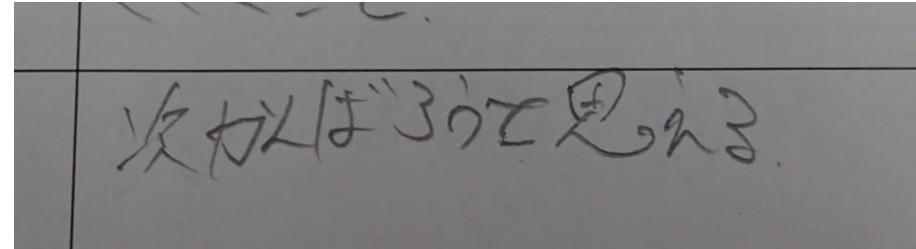 次がんばろうて思える.